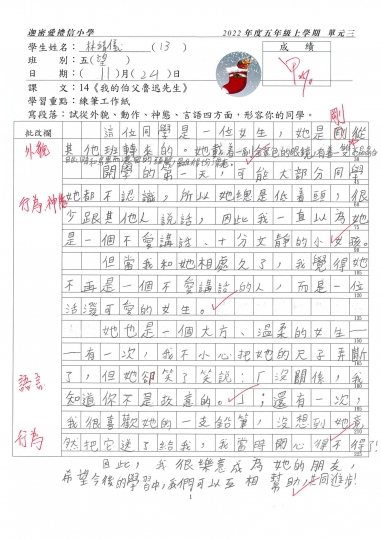 迦密愛禮信小學 2022年度五年級上學期 單元三
學生姓名： 林 儀 (13)
成績
班 別：五(望)
日 期：(11)月(24)日
課 文：14《我的伯父魯迅先生》
學習重點：練筆工作紙
寫段落：試從外貌、動作、神態、言語四方面，形容你的同學。
剛
批改欄 這位同學是一位女生，她是 從
外貌 其他班轉來的。她戴着一副金色的眼鏡，有着一雙
開學的第一天，可能大部分同學
行為 神態 她都不認識，所以她總是低着頭，很
少跟其他人說話，因此我一直以為她
是一個不愛講話、十分文靜的小女孩。
但當我和她相處久了，我覺得她
不再是一個不愛講話的人，而是一位
活潑可愛的女生。
她也是一個大方、溫柔的女生—
—有一次，我不小心把她的尺子弄斷
語言 了，但她卻笑了笑說：「沒關係，我
知道你不是故意的。」；還有一次，
我很喜歡她的一支鉛筆，沒想到她竟
行為 然把它送了給我，我當時開心得不得了！
因此，我很樂意成為她的朋友，
希望今後的學習中，我們可以互相幫助，共同進步！
1